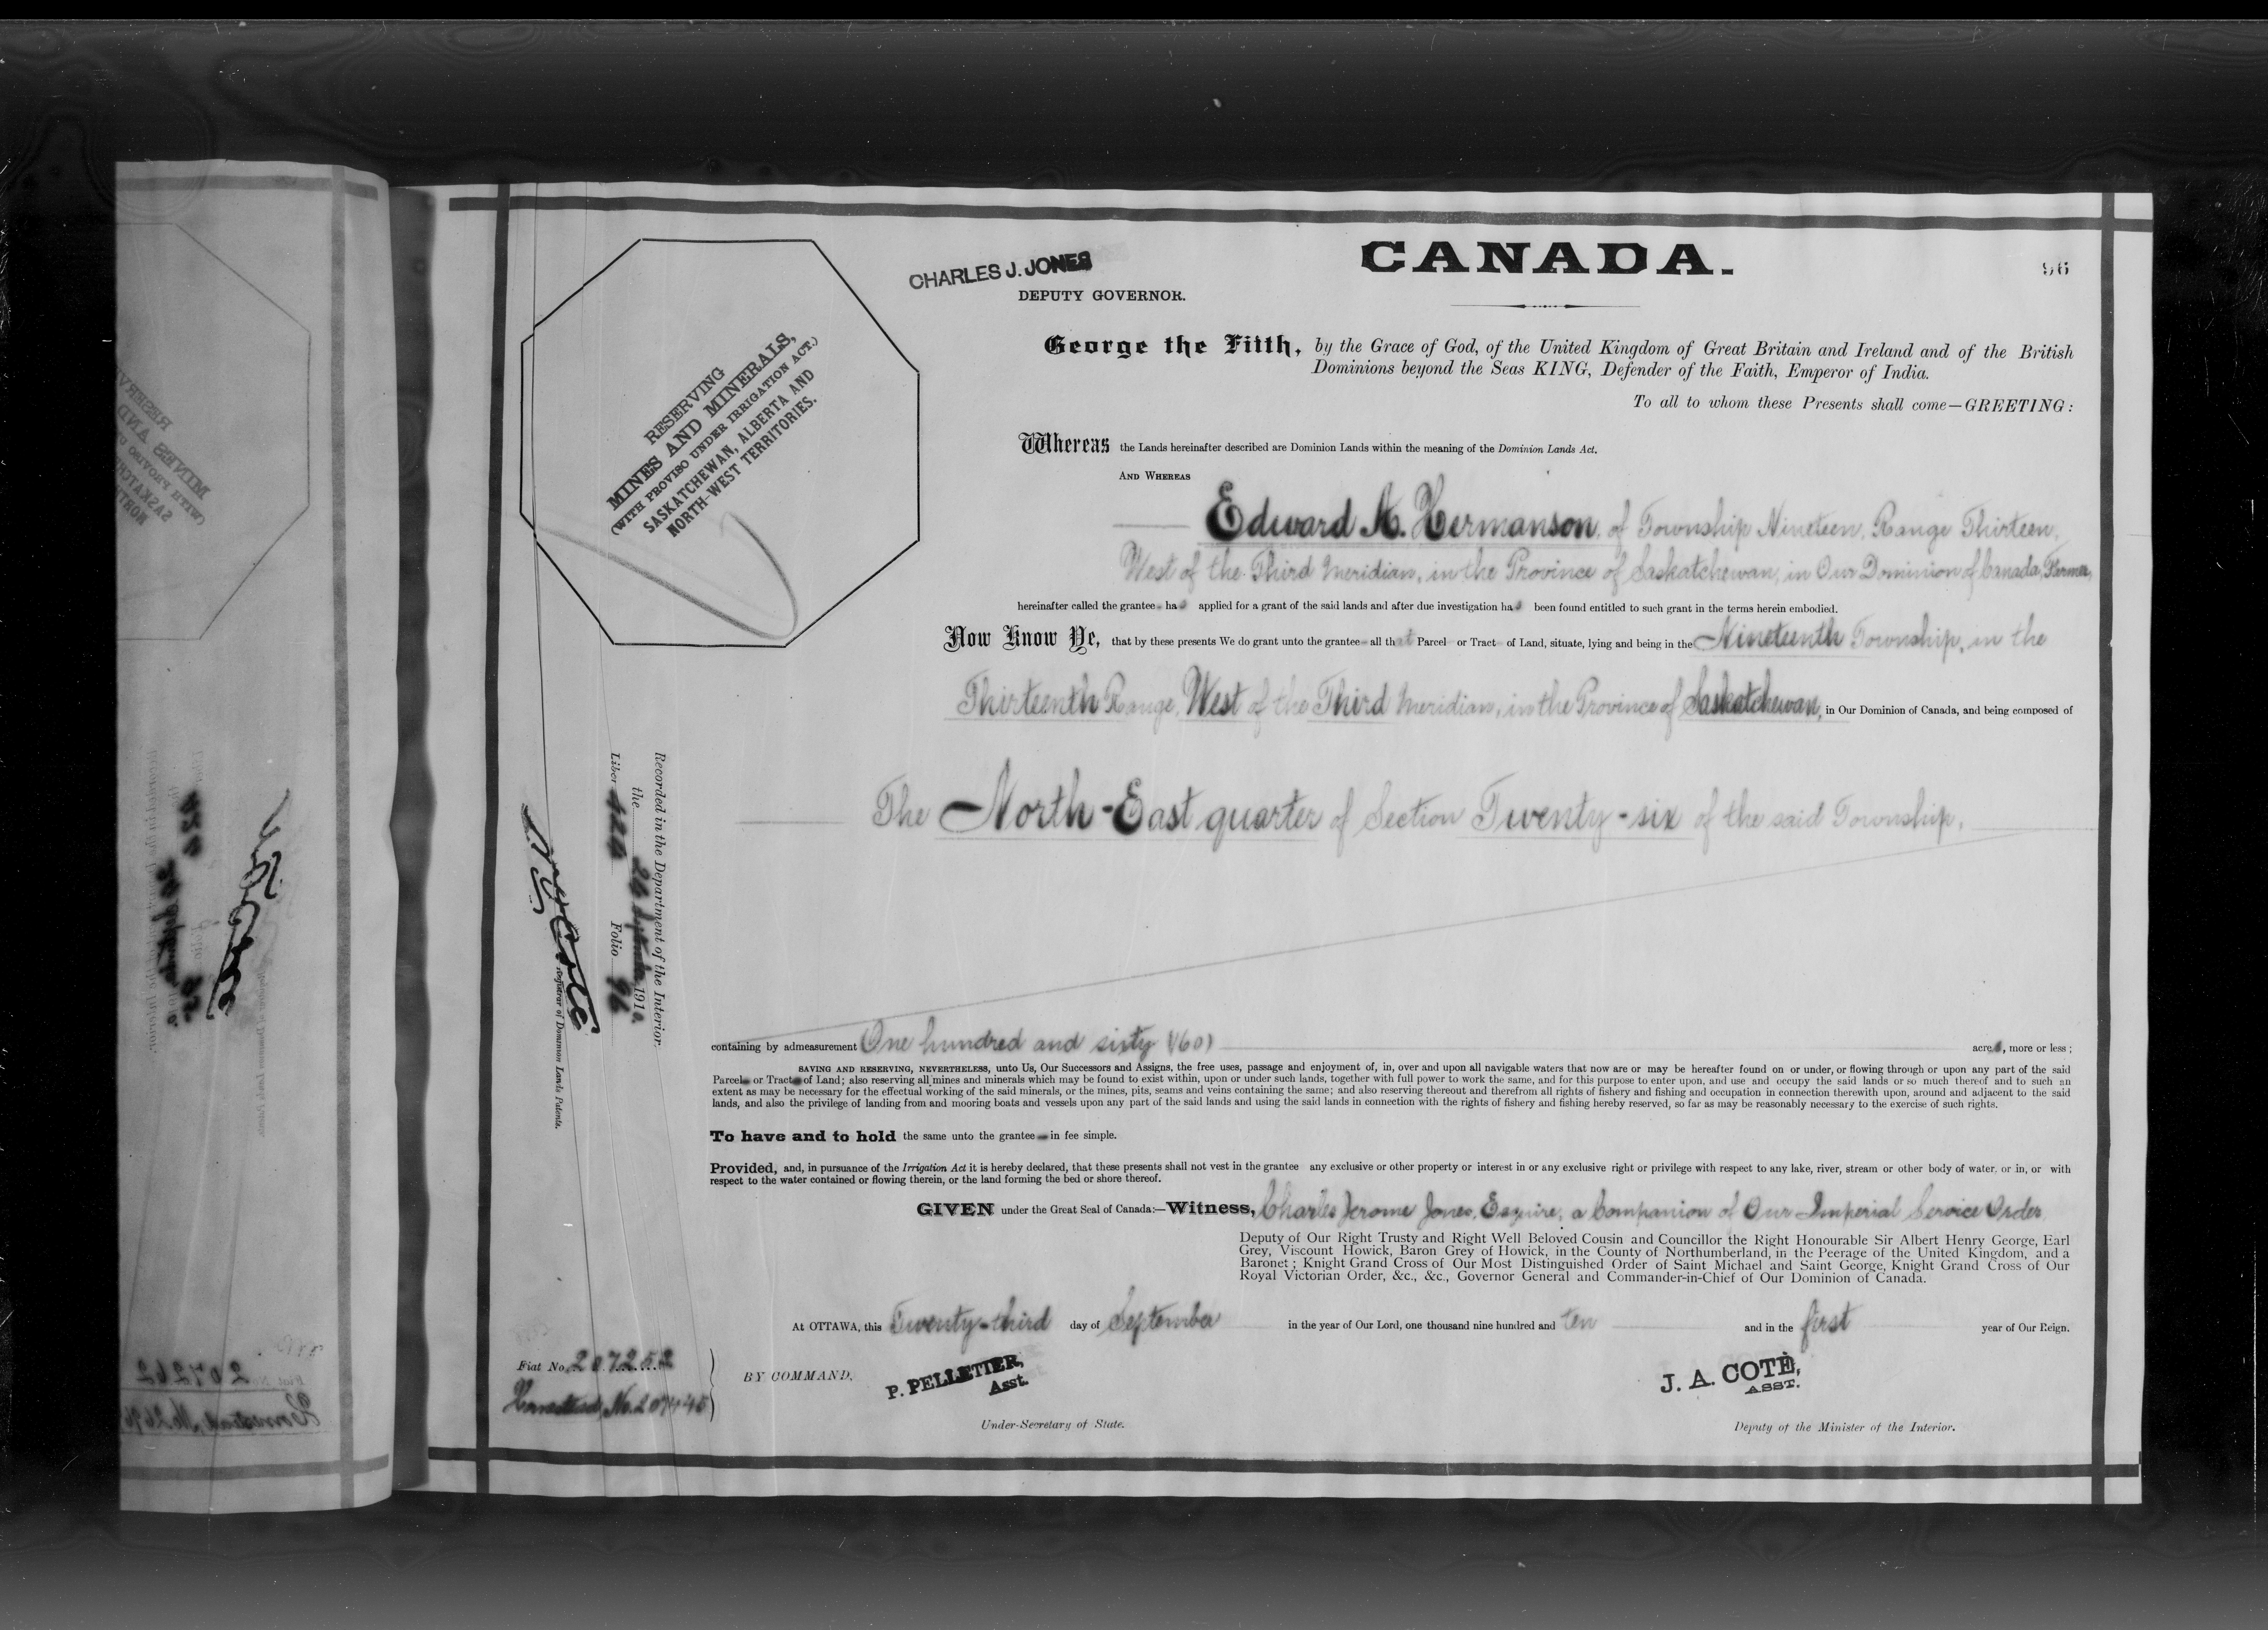 CANADA.
96
CHARLES J. JONES
DEPUTY GOVERNOR.
RESERVING
MINES AND MINERALS,
(WITH PROVISO UNDER IRRIGATION ACT.)
SASKATCHEWAN, ALBERTA AND
NORTH-WEST TERRITORIES.
George the Fifth, by the Grace of God, of the United Kingdom of Great Britain and Ireland and of the British
Dominions beyond the Seas KING, Defender of the Faith, Emperor of India.
To all to whom these Presents shall come—GREETING:
Whereas the Lands hereinafter described are Dominion Lands within the meaning of the Dominion Lands Act.
AND WHEREAS
Edward A. Hermanson, of Township Nineteen, Range Thirteen,
West of the Third Meridian, in the Province of Saskatchewan, in Our Dominion of Canada, Farmer,
hereinafter called the grantee has applied for a grant of the said lands and after due investigation has been found entitled to such grant in the terms herein embodied.
Now Know Ye, that by these presents We do grant unto the grantee all that Parcel or Tract of Land, situate, lying and being in the Nineteenth Township, in the
Thirteenth Range, West of the Third Meridian, in the Province of Saskatchewan, in Our Dominion of Canada, and being composed of
The North-East quarter of Section Twenty-six of the said Township,
containing by admeasurement One hundred and sixty (160) acres, more or less;
SAVING AND RESERVING, NEVERTHELESS, unto Us, Our Successors and Assigns, the free uses, passage and enjoyment of, in, over and upon all navigable waters that now are or may be hereafter found on or under, or flowing through or upon any part of the said
Parcel or Tract of Land; also reserving all mines and minerals which may be found to exist within, upon or under such lands, together with full power to work the same, and for this purpose to enter upon, and use and occupy the said lands or so much thereof and to such an
extent as may be necessary for the effectual working of the said minerals, or the mines, pits, seams and veins containing the same; and also reserving thereout and therefrom all rights of fishery and fishing and occupation in connection therewith upon, around and adjacent to the said
lands, and also the privilege of landing from and mooring boats and vessels upon any part of the said lands and using the said lands in connection with the rights of fishery and fishing hereby reserved, so far as may be reasonably necessary to the exercise of such rights.
To have and to hold the same unto the grantee in fee simple.
Provided, and, in pursuance of the Irrigation Act it is hereby declared, that these presents shall not vest in the grantee any exclusive or other property or interest in or any exclusive right or privilege with respect to any lake, river, stream or other body of water, or in, or with
respect to the water contained or flowing therein, or the land forming the bed or shore thereof.
GIVEN under the Great Seal of Canada:—Witness, Charles Jerome Jones, Esquire, a Companion of Our Imperial Service Order
Deputy of Our Right Trusty and Right Well Beloved Cousin and Councillor the Right Honourable Sir Albert Henry George, Earl
Grey, Viscount Howick, Baron Grey of Howick, in the County of Northumberland, in the Peerage of the United Kingdom, and a
Baronet; Knight Grand Cross of Our Most Distinguished Order of Saint Michael and Saint George, Knight Grand Cross of Our
Royal Victorian Order, &c., &c., Governor General and Commander-in-Chief of Our Dominion of Canada.
At OTTAWA, this Twenty-third day of September in the year of Our Lord, one thousand nine hundred and ten and in the first year of Our Reign.
Fiat No. 207252
Homestead No.
BY COMMAND,
P. PELLETIER,
Asst.
Under-Secretary of State.
J. A. COTÉ,
ASST.
Deputy of the Minister of the Interior.
Recorded in the Department of the Interior
the 1910.
Liber Folio 96
N. O. Coté
Registrar of Dominion Lands Patents.